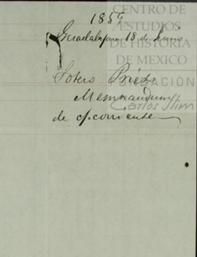 1859
CENTRO DE
ESTUDIOS
DE HISTORIA
DE MEXICO
FUNDACIÓN
Carlos Slim
Guadalajara 18 de Junio
Sotero Prieto
Memorandum
de c/. corriente